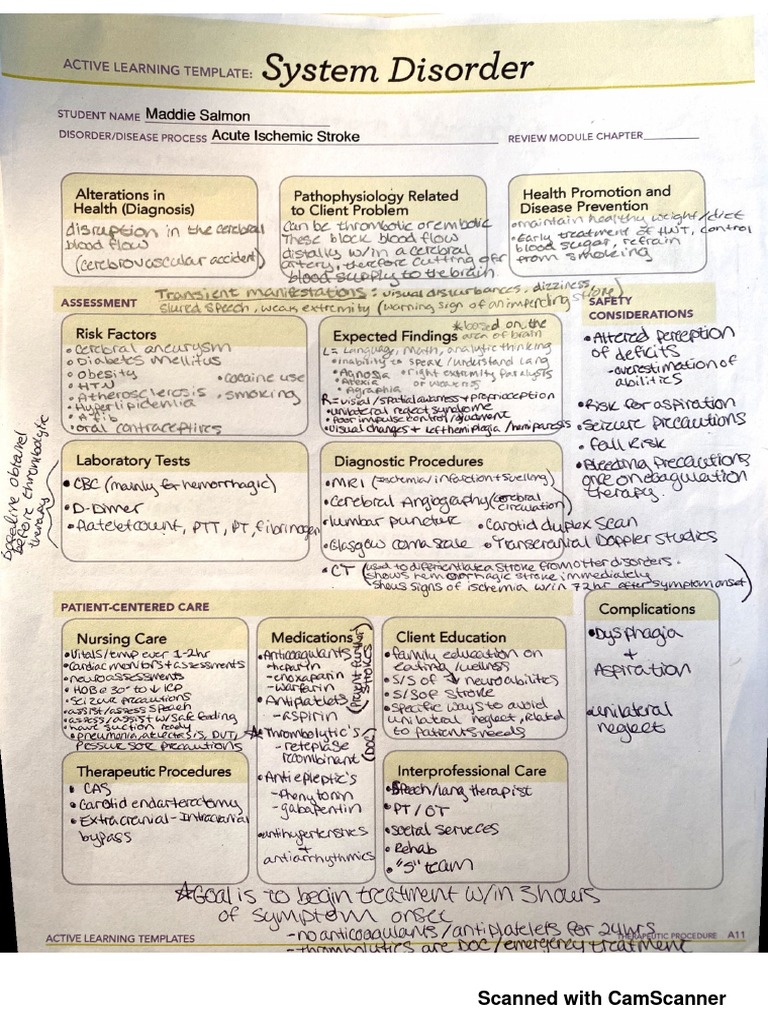 ACTIVE LEARNING TEMPLATE: System Disorder
STUDENT NAME Maddie Salmon
DISORDER/DISEASE PROCESS Acute Ischemic Stroke
REVIEW MODULE CHAPTER
Alterations in
Health (Diagnosis)
disruption in the cerebral
blood flow
(cerebrovascular accident)
Pathophysiology Related
to Client Problem
can be thrombotic or embolic
These block blood flow
distally w/in a cerebral
artery, therefore cutting off
blood supply to the brain
Health Promotion and
Disease Prevention
•maintain healthy weight/diet
•Early treatment of HNT, control
blood sugar, refrain
from smoking
ASSESSMENT
Transient manifestations: visual disturbances, dizziness,
slured speech, weak extremity (warning sign of an impending stroke)
SAFETY
CONSIDERATIONS
•Altered perception
of deficits
-overestimation of
abilities
•Risk for aspiration
•Seizure precautions
•fall Risk
•Bleeding Precautions
once on coagulation
therapy.
Risk Factors
•Cerebral aneurysm
•Diabetes mellitus
•Obesity
•HTN
•Atherosclerosis
•Hyperlipidemia
•A fib
•oral contraceptives
•cocaine use
•smoking
Expected Findings
*based on the
area of brain
L= Language, math, analytic thinking
•inability to speak/understand lang
•Agnosa
•Alexia
•Agraphia
•right extremity paralysis
or weakness
R=visual/spatial awarness+proprioception
•unilateral neglect syndrome
•Poor impulse control/judgement
•visual changes + left hemiplegia/hemiparesis
Baseline obtained
before thrombolytic
therapy
Laboratory Tests
•CBC (mainly for hemorrhagic)
•D-Dimer
•Plateletcount, PTT, PT, fibrinogen
Diagnostic Procedures
•MRI (ischemia/infarction+swelling)
•Cerebral Angiography (cerebral
circulation)
•lumbar puncture
•Carotid duplex scan
•Glasgow coma scale
•Transcranial Doppler Studies
•CT (used to differentiate a stroke from other disorders.
shows hemorrhagic stroke immediately
shows signs of ischemia w/in 72hr after symptom onset)
PATIENT-CENTERED CARE
Nursing Care
•Vitals/temp ever 1-2hr
•Cardiac monitors+assessments
•neuro assessments
•HOB @ 30° to ↓ ICP
•Seizure precautions
•assist/assess speach
•assess/assist w/safe feeding
•have suction ready
•pneumonia, atlectesis, DVT,
Pessure sore precautions
Medications
•Anticoagulants
-heparin
-enoxaparin
-warfarin
•Antiplatlets
-aspirin
(prevent further
strokes)
☆Thrombolytic's
-reteplase
recombinant
(DOC)
•Antiepleptic's
-Phenytonin
-gabapentin
•antihypertensives
+
antiarrhythmics
Client Education
•family education on
eating/wellness
•S/S of ↓ neuro abilites
•S/S of stroke
•Specific ways to avoid
unilatral neglect, related
to patients needs
Complications
•Dysphagia
+
Aspiration
•unilateral
neglect
Therapeutic Procedures
• CAS
•Carotid endarterectomy
•Extracranial-Intracranial
bypass
Interprofessional Care
•Speech/lang therapist
•PT/OT
•social serveces
•Rehab
•"S" team
☆Goal is to begin treatment w/in 3 hours
of symptom onset
-no anticoagulants/antiplatlets for 24hrs
-thrombolytics are DOC/emergency treatment
ACTIVE LEARNING TEMPLATES
THERAPEUTIC PROCEDURE A11
Scanned with CamScanner